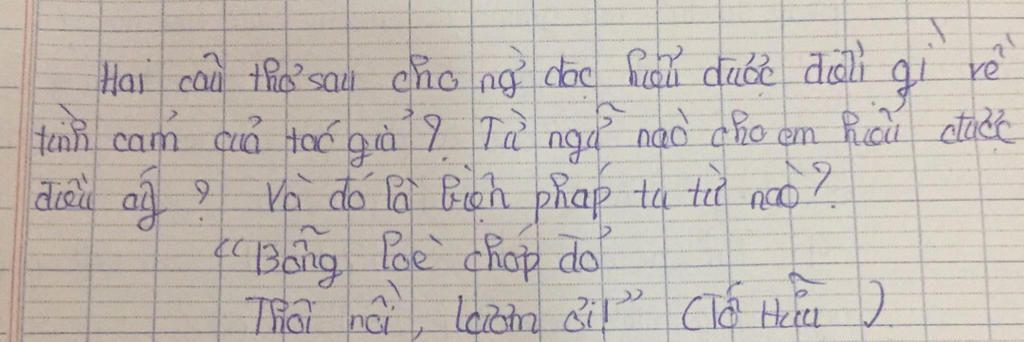 Hai câu thơ sau cho ng đọc hiểu được điều gì về
tình cảm của tác giả ? Từ ngữ nào cho em hiểu được
điều ấy ? Và đó là biện pháp tu từ nào ?
"Bỗng loè chớp đỏ
Thôi rồi, Lượm ơi!" (Tố Hữu)